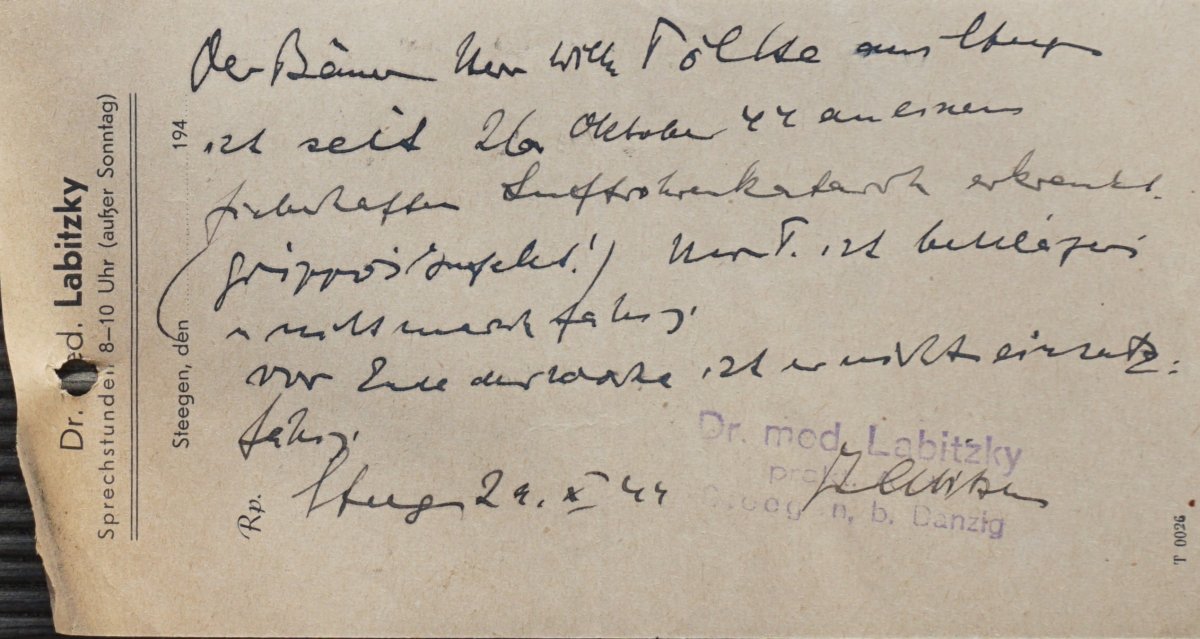 Dr. med. Labitzky
Sprechstunden 8–10 Uhr (außer Sonntag)
Steegen, den 194
Rp.
Der Herr Wilh. Tölke aus
ist seit 26. Oktober 44 an einem
fieberhaften Luftröhrenkatarrh erkrankt.
Herr T. ist bettlägrig
u. nicht marschfähig.
Vor Ende der Woche ist er nicht einsatz-
fähig.
29. X 44
Dr. med. Labitzky
prakt.
Steegen, b. Danzig
T 0026